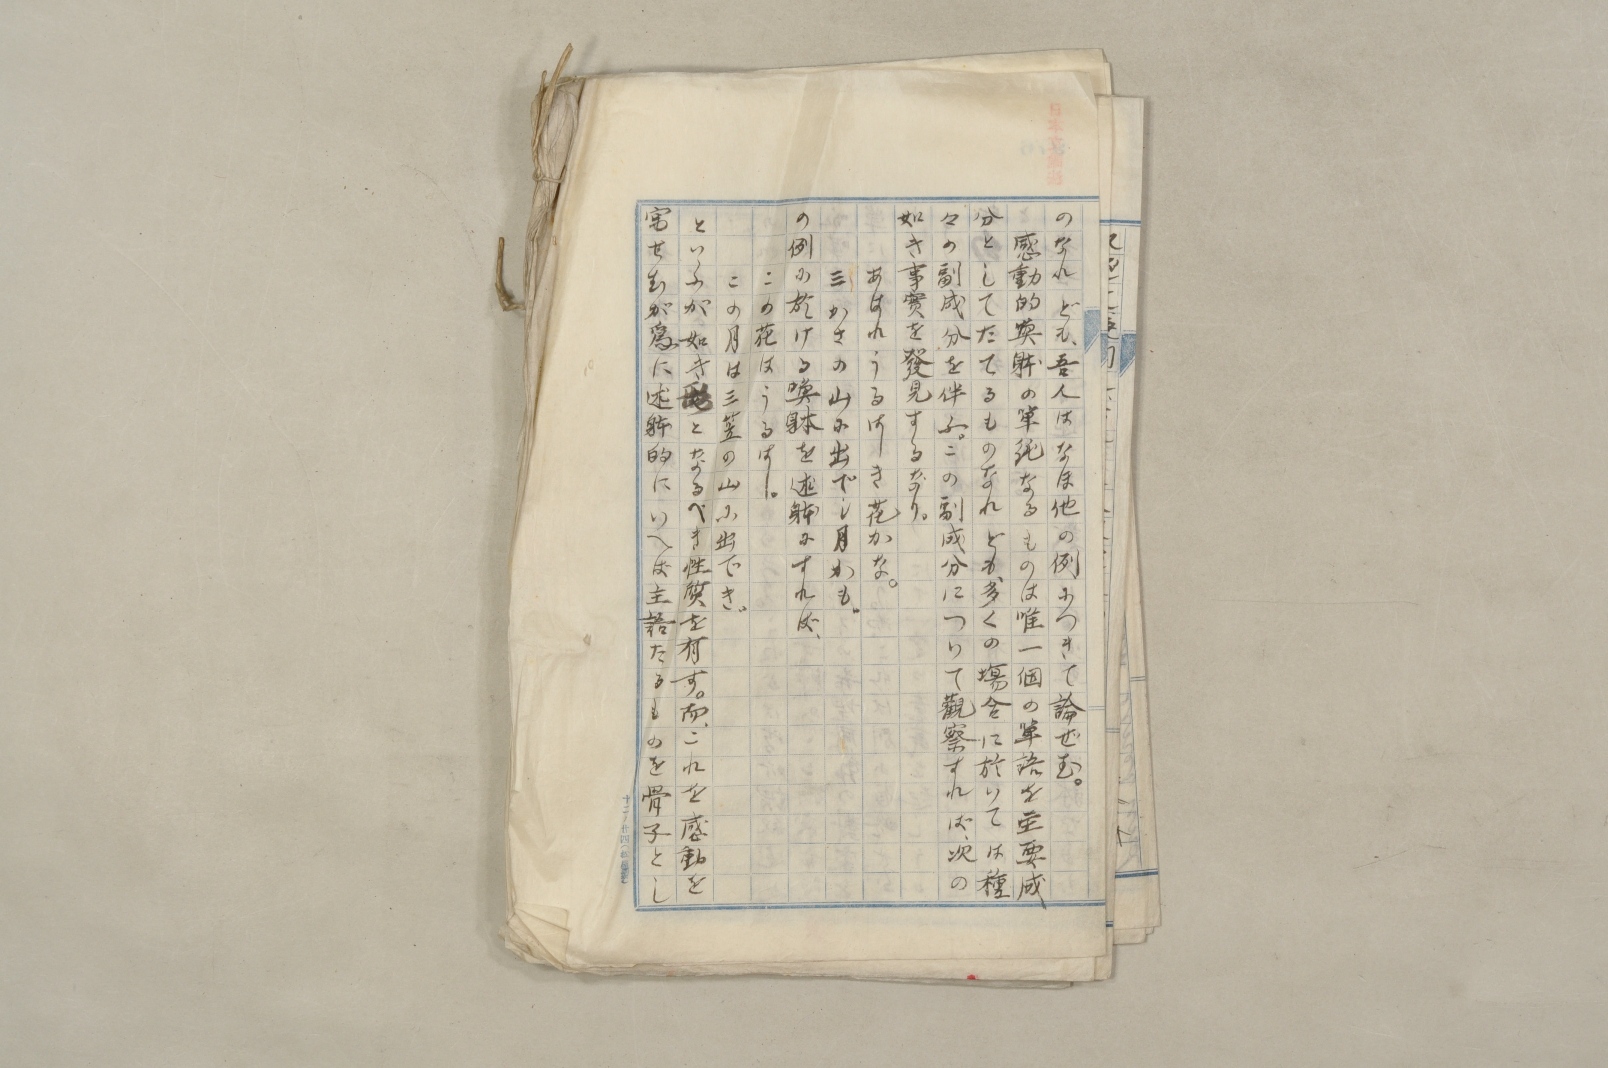 のなれども、吾人はなほ他の例につきて論ぜむ。
感動的喚躰の單純なるものは唯一個の單語を主要成
分としてたてるものなれども多くの場合に於いては種
々の副成分を伴ふ。この副成分につりて觀察すれば、次の
如き事實を發見するなり。
あはれうるはしき花かな。
三かさの山に出でし月かも。
の例に於ける喚躰を述躰にすれば、
この花はうるはし。
この月は三笠の山に出でき。
といふが如き形となるべき性質を有す。而、これを感動を
寓せむが爲に述躰的にいへば主語たるものを骨子とし